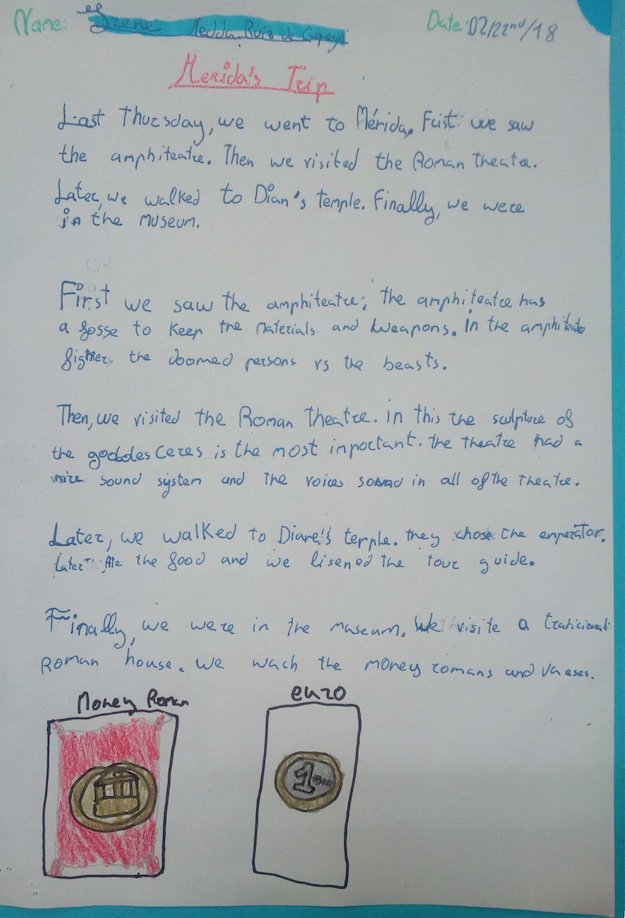 Name: Irene Date: 02/22nd/18
Merida's Trip
Last Thursday, we went to Mérida. Fist we saw
the amphiteatre. Then we visited the Roman theatre.
Later, we walked to Dian's temple. Finally, we were
in the museum.
First we saw the amphiteatre; the amphiteatre has
a fosse to keep the materials and weapons. In the
the doomed persons vs the beasts.
Then, we visited the Roman theatre. In this the sculpture of
the Ceres is the most inportant. the theatre had a
nice sound system and the voices in all of the theatre.
Later, we walked to temple. they the
Later the food and we lisened the tour guide.
Finally, we were in the museum. We visite a
Roman house. we wach the money romans and
Money Roman
euro
1